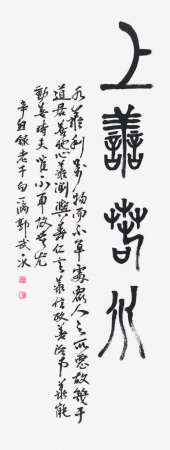 上善若水
水善利萬物而不争處衆人之所惡故幾于
道居善地心善淵與善仁言善信政善治事善能
動善時夫惟不争故無尤
辛丑錄老子句